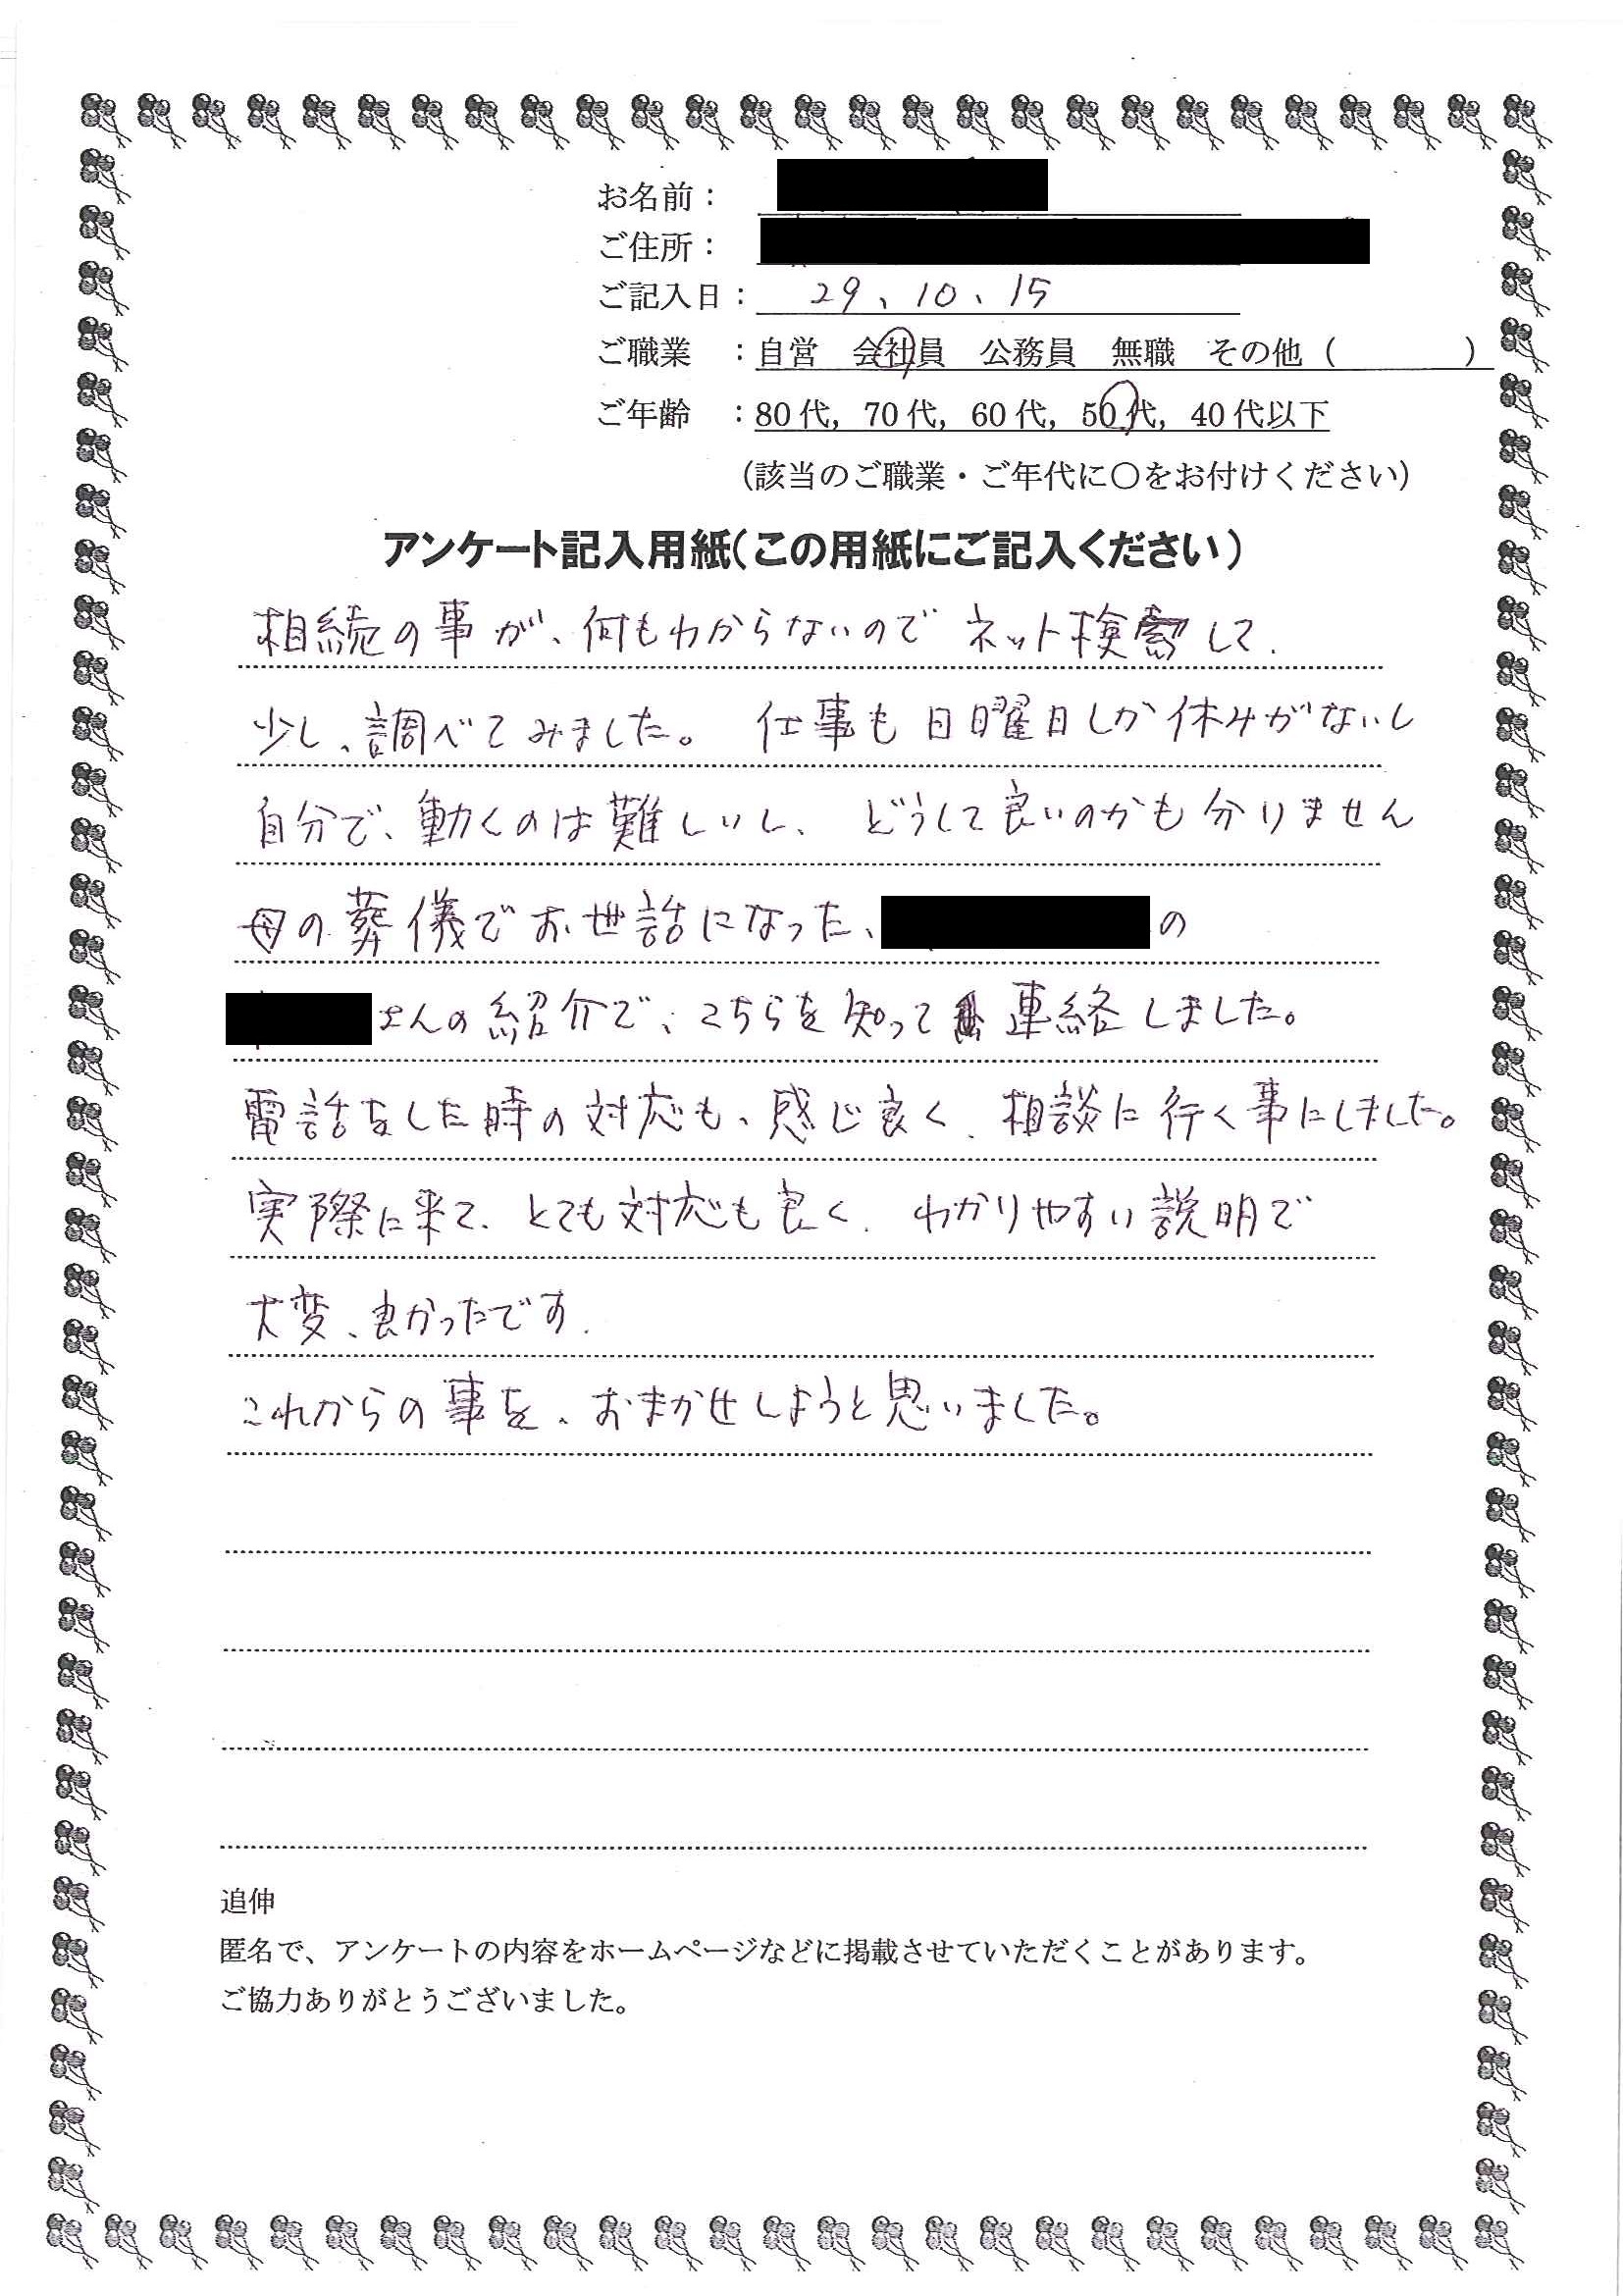 お名前：
ご住所：
ご記入日： 29、10、15
ご職業 ：自営 会社員 公務員 無職 その他（ ）
ご年齢 ：80代，70代，60代，50代，40代以下
（該当のご職業・ご年代に〇をお付けください）
アンケート記入用紙（この用紙にご記入ください）
相続の事が、何もわからないのでネット検索して、
少し、調べてみました。 仕事も日曜日しか休みがないし
自分で、動くのは難しいし、どうして良いのかも分りません
母の葬儀でお世話になった、 の
さんの紹介で、こちらを知って 連絡しました。
電話をした時の対応も、感じ良く、相談に行く事にしました。
実際に来て、とても対応も良く、わかりやすい説明で
大変、良かったです。
これからの事を、おまかせしようと思いました。
追伸
匿名で、アンケートの内容をホームページなどに掲載させていただくことがあります。
ご協力ありがとうございました。